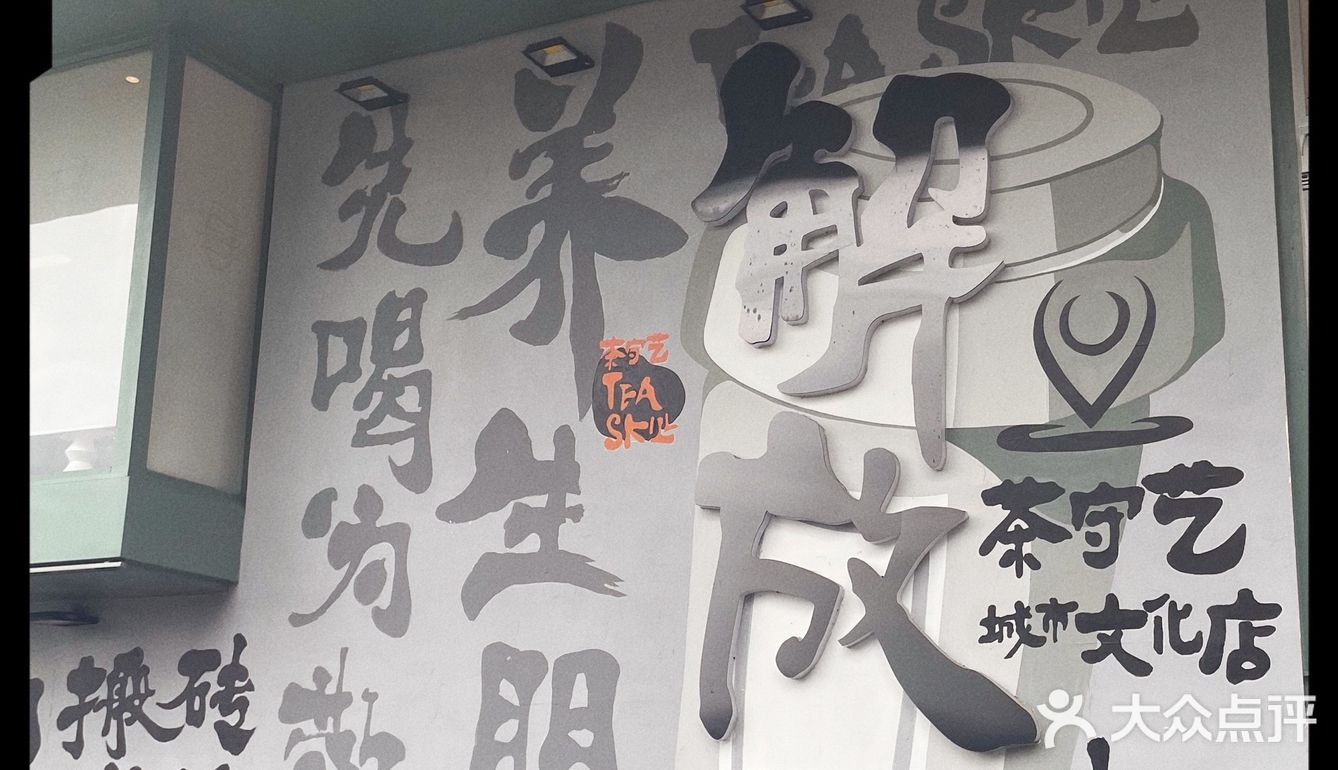 TEA SKILL
解放
养生朋
先喝为敬
茶守艺
TEA
SKILL
茶守艺
城市文化店
搬砖
大众点评